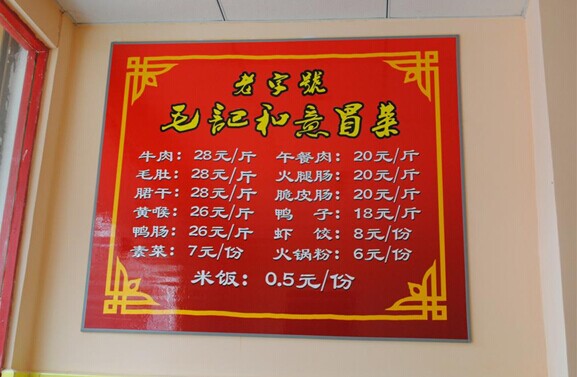 老字號
毛記和意冒菜
牛肉：28元/斤 午餐肉：20元/斤
毛肚：28元/斤 火腿肠：20元/斤
䐃干：28元/斤 脆皮肠：20元/斤
黄喉：26元/斤 鸭 子：18元/斤
鸭肠：26元/斤 虾 饺：8元/份
素菜：7元/份 火锅粉：6元/份
米饭：0.5元/份